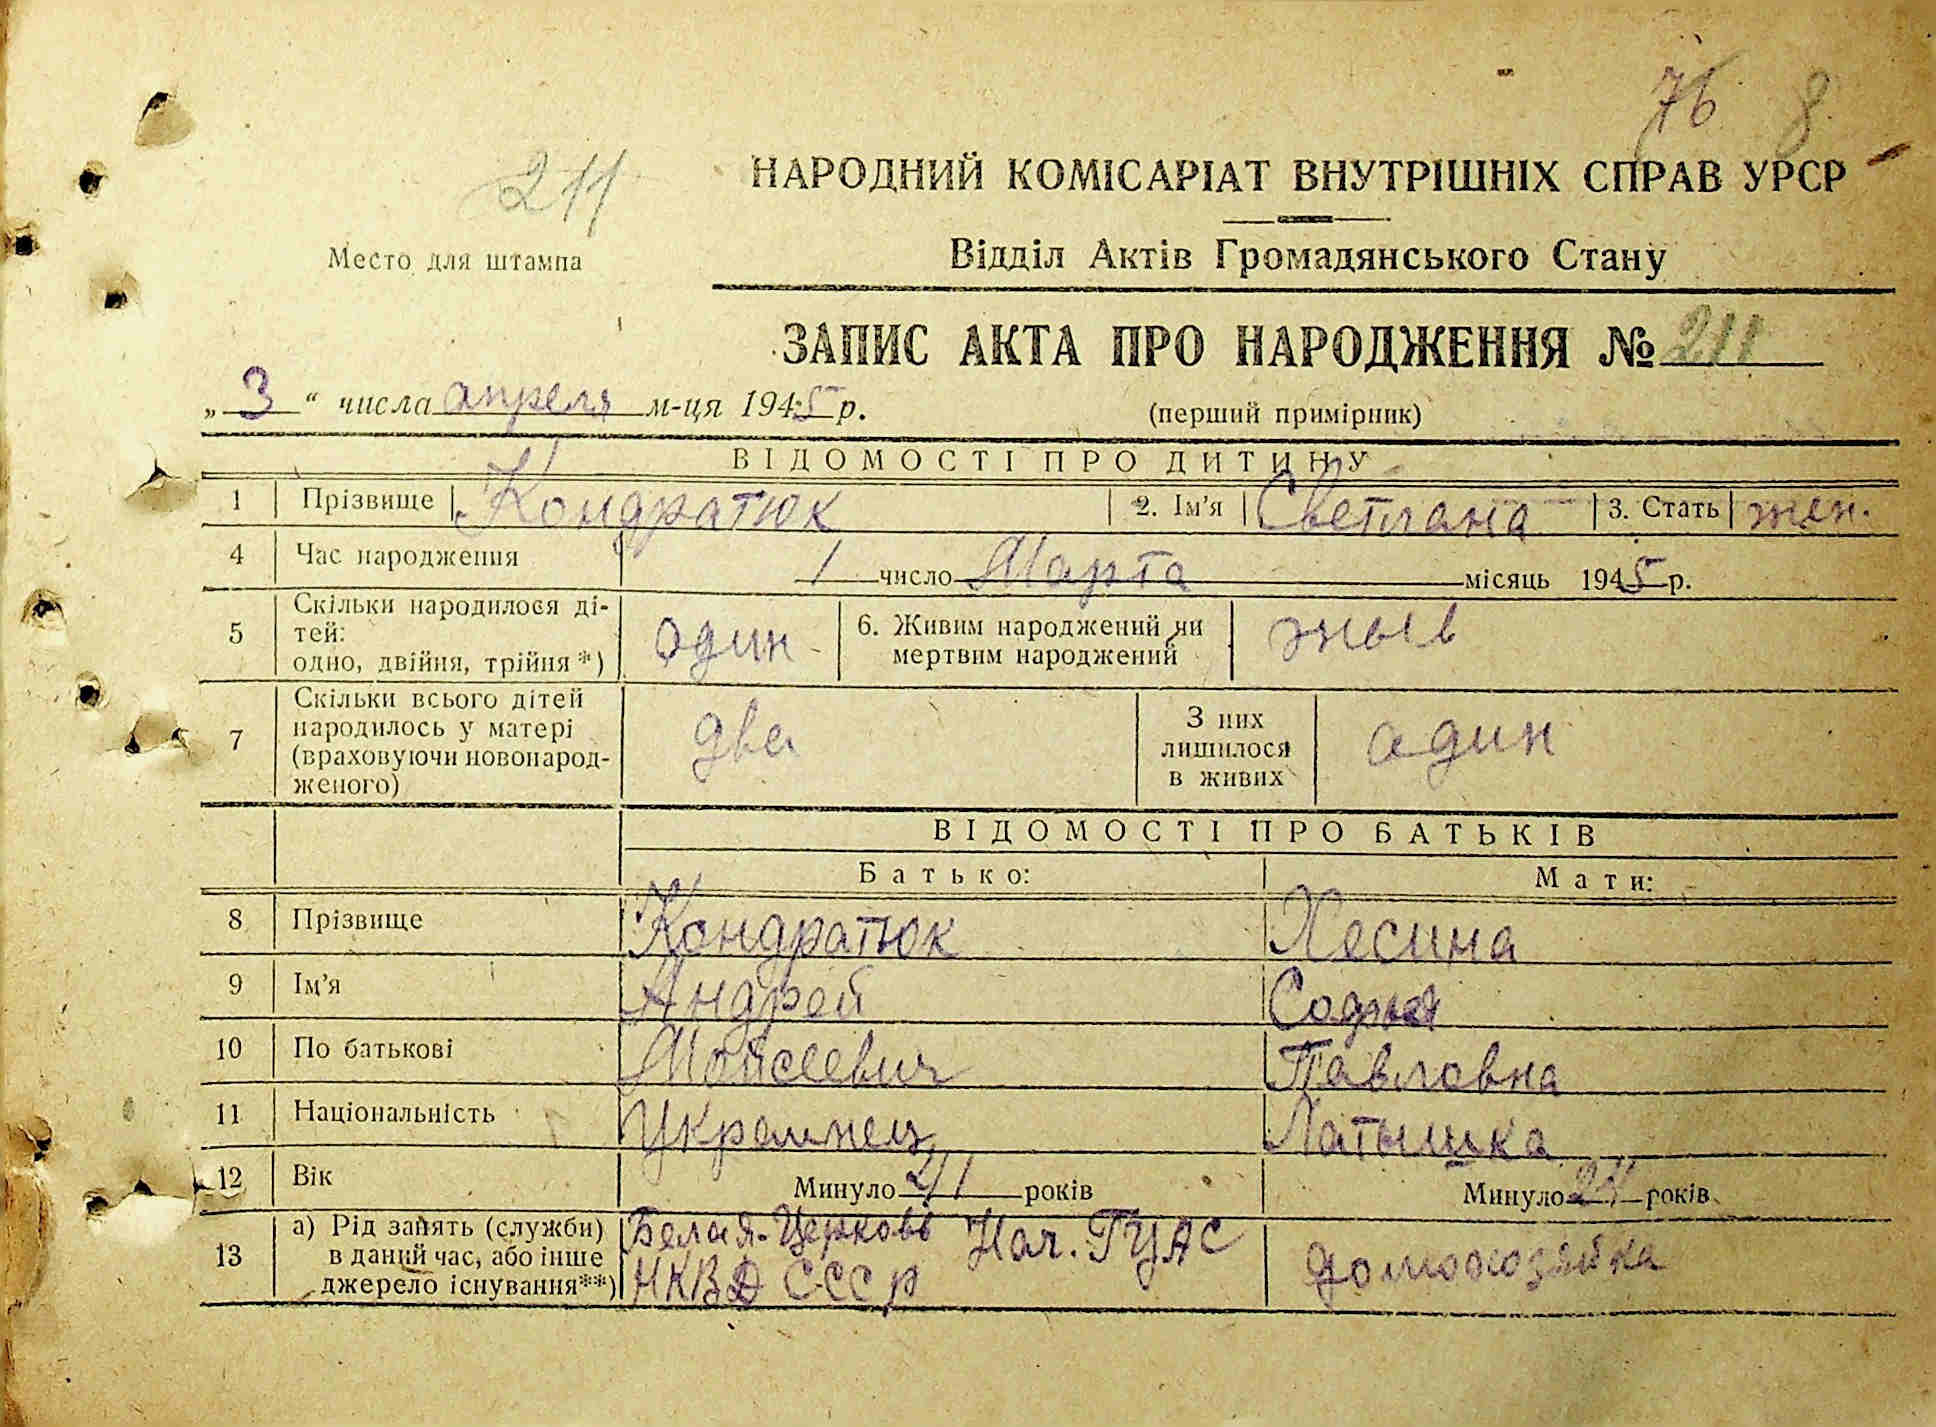 76 8
211
НАРОДНИЙ КОМІСАРІАТ ВНУТРІШНІХ СПРАВ УРСР
Место для штампа
Відділ Актів Громадянського Стану
ЗАПИС АКТА ПРО НАРОДЖЕННЯ № 211
„3“ числа апреля м-ця 1945 р.
(перший примірник)
ВІДОМОСТІ ПРО ДИТИНУ
1 Прізвище Кондратюк 2. Ім'я Светлана 3. Стать жен.
4 Час народження 1 число Марта місяць 1945 р.
5 Скільки народилося ді-
тей:
одно, двійня, трійня *) один 6. Живим народжений чи
мертвим народжений жыв
7 Скільки всього дітей
народилось у матері
(враховуючи новонарод-
женого) два З них
лишилося
в живих один
ВІДОМОСТІ ПРО БАТЬКІВ
Батько: Мати:
8 Прізвище Кондратюк Лесина
9 Ім'я Андрей
10 По батькові Мойсеевич Павловна
11 Національність Украинец Латышка
12 Вік Минуло років Минуло років
13 а) Рід занять (служби)
в даний час, або інше
джерело існування**) Белая-Церковь Нач.
НКВД СССР домохозяйка